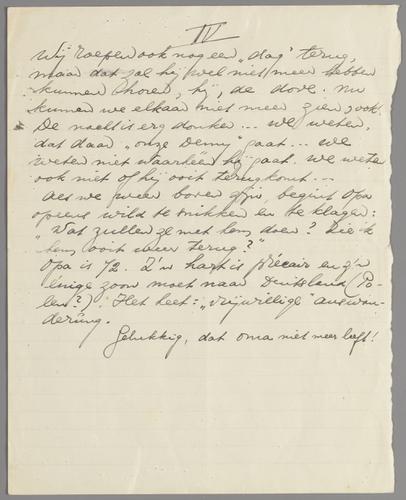 IV
Wij roepen ook nog een „dag" terug,
maar dat zal hij wel niet meer hebben
kunnen hooren, hij, de dove. Nu
kunnen we elkaar niet meer zien ook.
De nacht is erg donker... we weten,
dat daar „onze Denny" gaat... we
weten niet waarheen hij gaat. We weten
ook niet of hij ooit terugkomt...
Als we weer boven zijn, begint Opa
opeens wild te snikken en te klagen:
„Wat zullen ze met hem doen? Zie ik
hem ooit weer terug?"
Opa is 72. Z'n hart is précair en z'n
eenige zoon moet naar Duitsland (Po-
len?) Het heet: „vrijwillige" auswan-
derung.
Gelukkig, dat oma niet meer leeft!